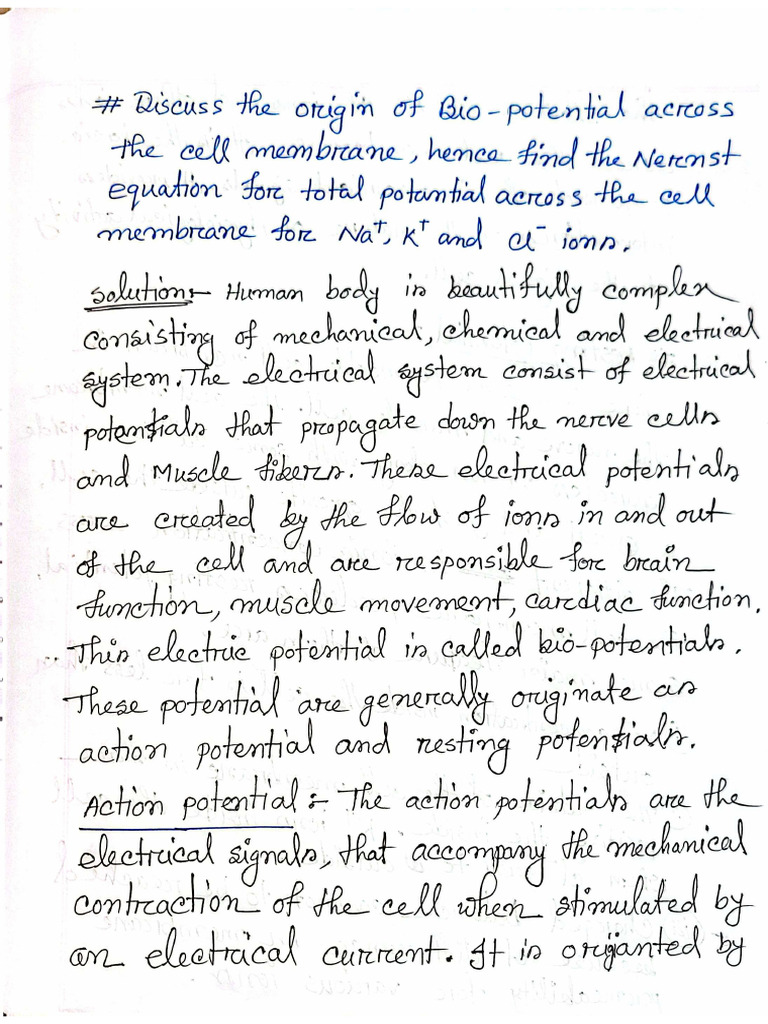 # Discuss the origin of Bio-potential across
the cell membrane, hence find the Nernst
equation for total potantial across the cell
membrane for Na⁺, K⁺ and Cl⁻ ions.
Solution:- Human body is beautifully complex
consisting of mechanical, chemical and electrical
system. The electrical system consist of electrical
potentials that propagate down the nerve cells
and Muscle fibers. These electrical potentials
are created by the flow of ions in and out
of the cell and are responsible for brain
function, muscle movement, cardiac function.
This electric potential is called bio-potentials.
These potential are generally originate as
action potential and resting potentials.
Action potential :- The action potentials are the
electrical signals, that accompany the mechanical
contraction of the cell when stimulated by
an electrical current. It is origanted by